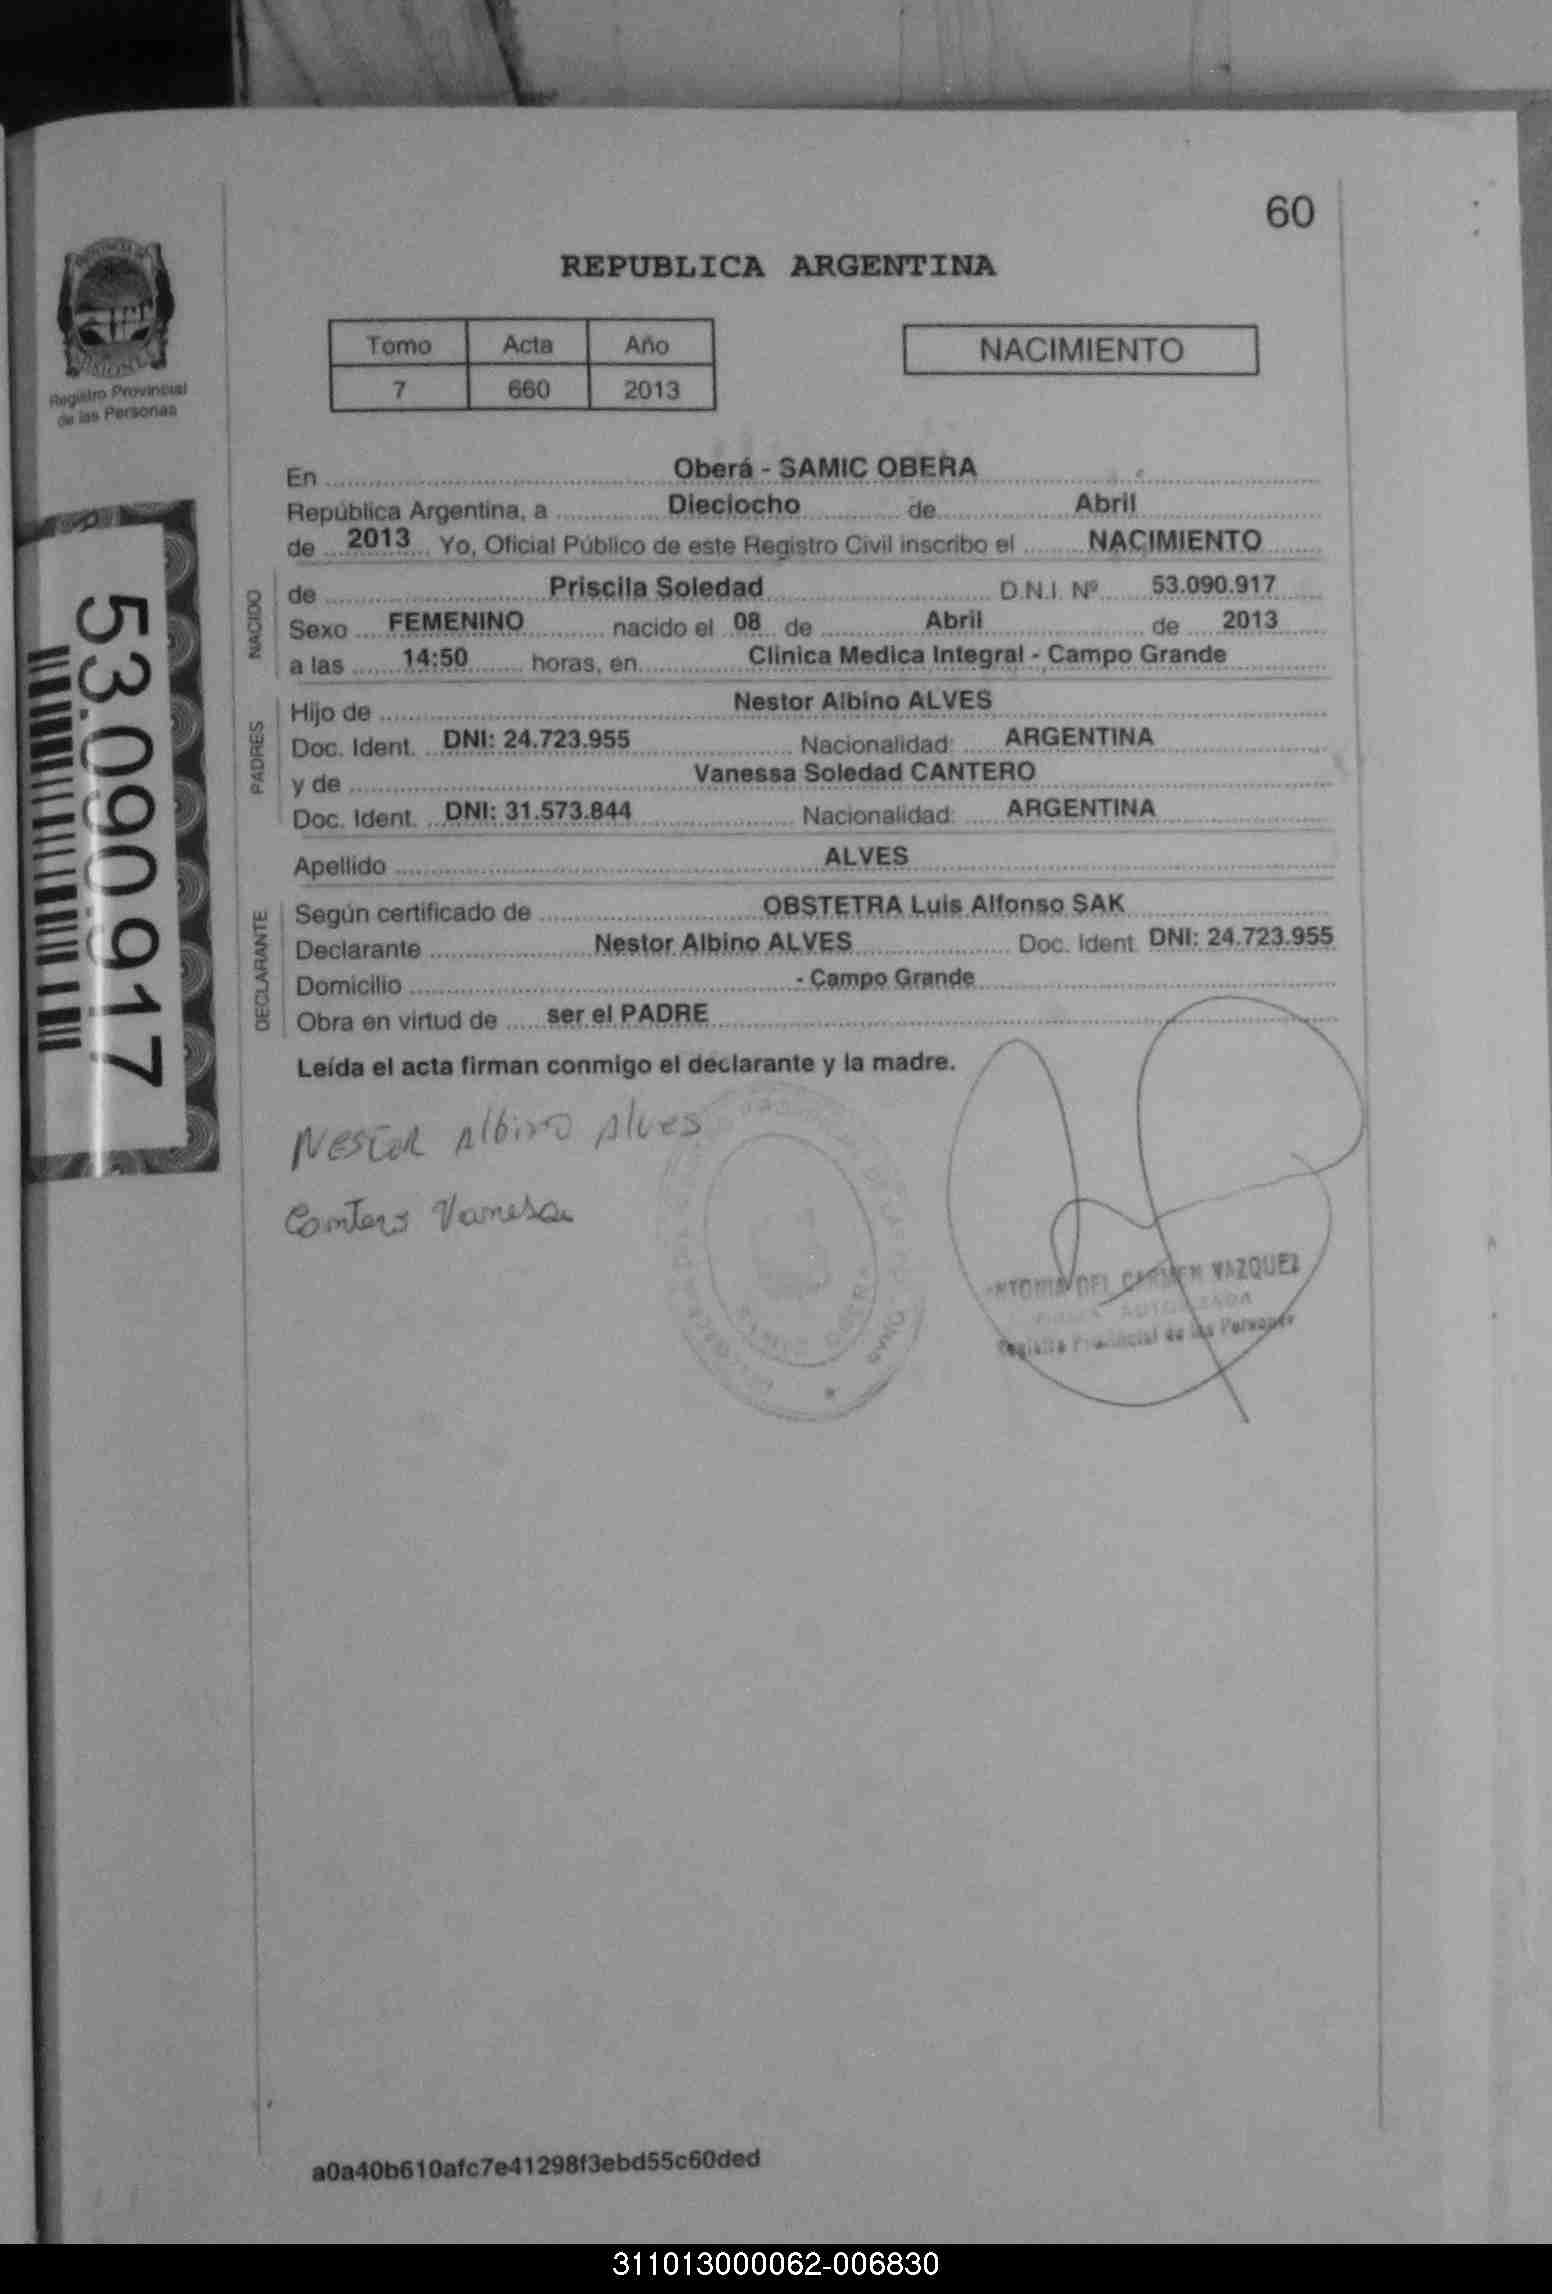 60
REPUBLICA ARGENTINA
Tomo Acta Año
7 660 2013
NACIMIENTO
Registro Provincial
de las Personas
En Oberá - SAMIC OBERA
República Argentina, a Dieciocho de Abril
de 2013 Yo, Oficial Público de este Registro Civil inscribo el NACIMIENTO
NACIDO
de Priscila Soledad D.N.I. Nº 53.090.917
Sexo FEMENINO nacido el 08 de Abril de 2013
a las 14:50 horas, en Clinica Medica Integral - Campo Grande
PADRES
Hijo de Nestor Albino ALVES
Doc. Ident. DNI: 24.723.955 Nacionalidad: ARGENTINA
y de Vanessa Soledad CANTERO
Doc. Ident. DNI: 31.573.844 Nacionalidad: ARGENTINA
Apellido ALVES
DECLARANTE
Según certificado de OBSTETRA Luis Alfonso SAK
Declarante Nestor Albino ALVES Doc. Ident. DNI: 24.723.955
Domicilio - Campo Grande
Obra en virtud de ser el PADRE
Leída el acta firman conmigo el declarante y la madre.
53.090.917
Nestor Albino Alves
Cantero Vanesa
DEL CARMEN VAZQUEZ
Registro Provincial de las Personas
a0a40b610afc7e41298f3ebd55c60ded
311013000062-006830